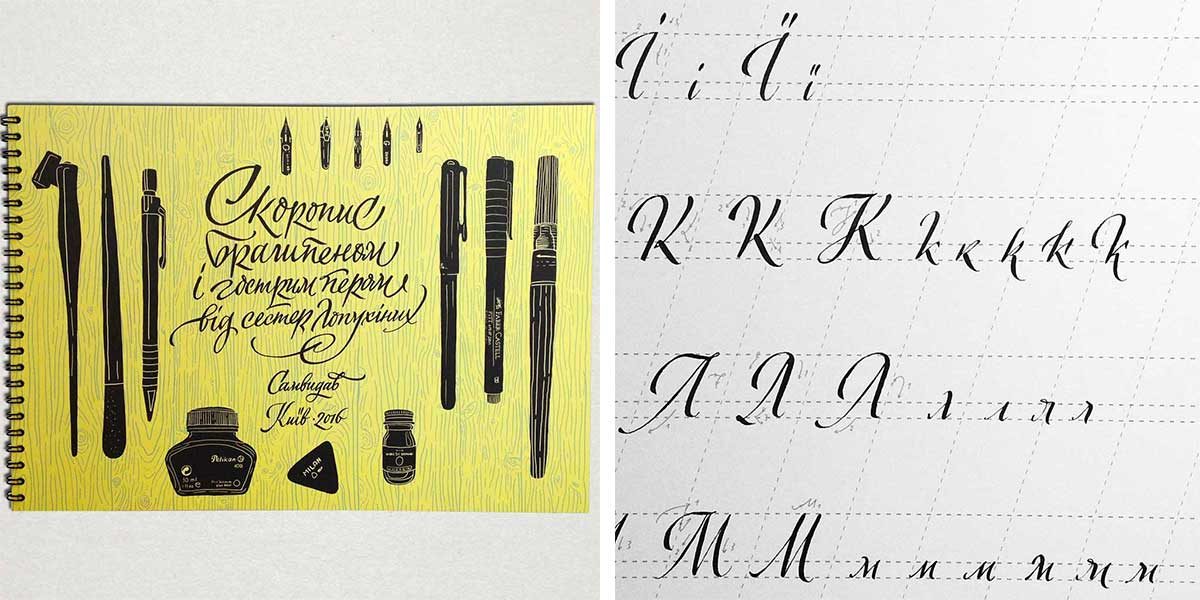 Скоропис
брашпеном
і гострим пером
від сестер Лопухіних
Самвидав
Київ 2016
Pelikan
MILAN
FABER-CASTELL
І і Ї ї
К К К к к к к к
Л Л Л л л л л
М М м м м м м м